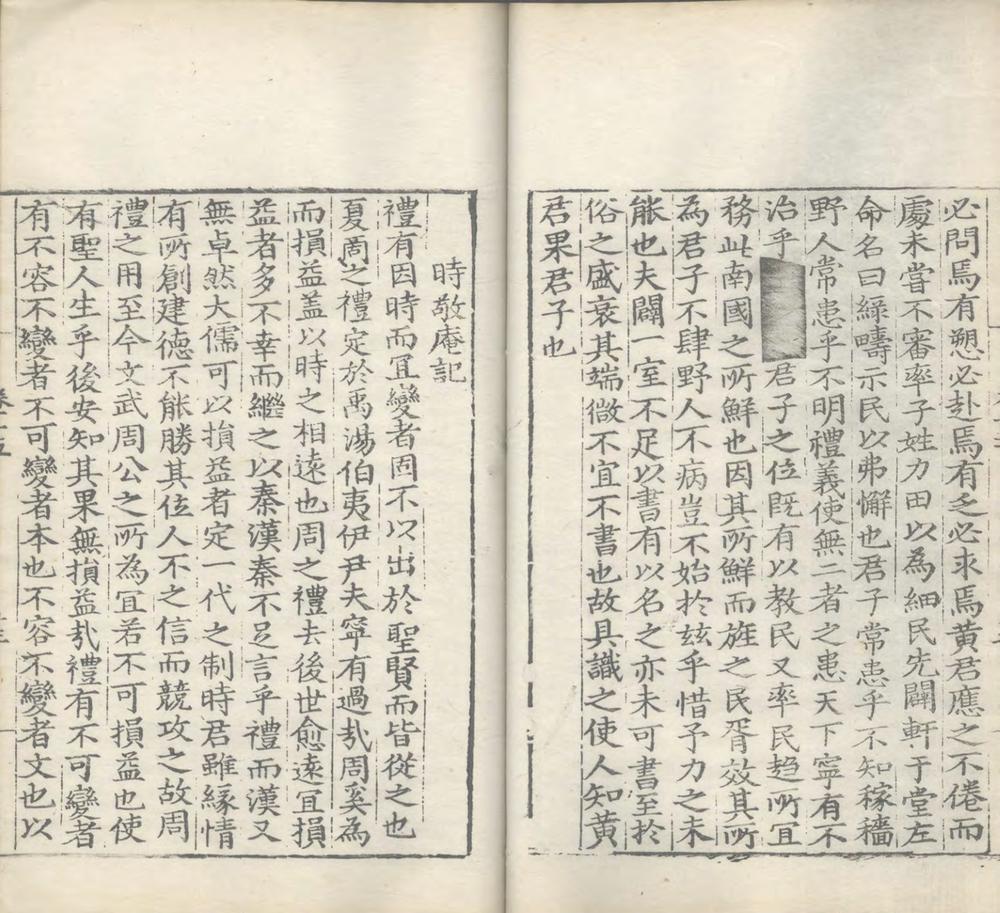 必問焉有愬必赴焉有乏必求焉黃君應之不倦而
處未嘗不審率子姓力田以為細民先闢軒于堂左
命名曰緑疇示民以弗懈也君子常患乎不知稼穡
野人常患乎不明禮義使無二者之患天下寧有不
治乎君子之位既有以教民又率民趋所宜
務此南國之所鮮也因其所鮮而旌之民胥效其所
為君子不肆野人不病豈不始於兹乎惜予力之未
能也夫闢一室不足以書有以名之亦未可書至於
俗之盛衰其端微不宜不書也故具識之使人知黃
君果君子也
時敬庵記
禮有因時而宜變者固不以出於聖賢而皆從之也
夏啇之禮定於禹湯伯夷伊尹夫寧有過㢤周奚為
而損益盖以時之相遠也周之禮去後世愈遠宜損
益者多不幸而繼之以秦漢秦不足言乎禮而漢又
無卓然大儒可以損益者定一代之制時君雖緣情
有所創建德不能勝其位人不之信而競攻之故周
禮之用至今文武周公之所為宜若不可損益也使
有聖人生乎後安知其果無損益㢤禮有不可變者
有不容不變者不可變者本也不容不變者文也以